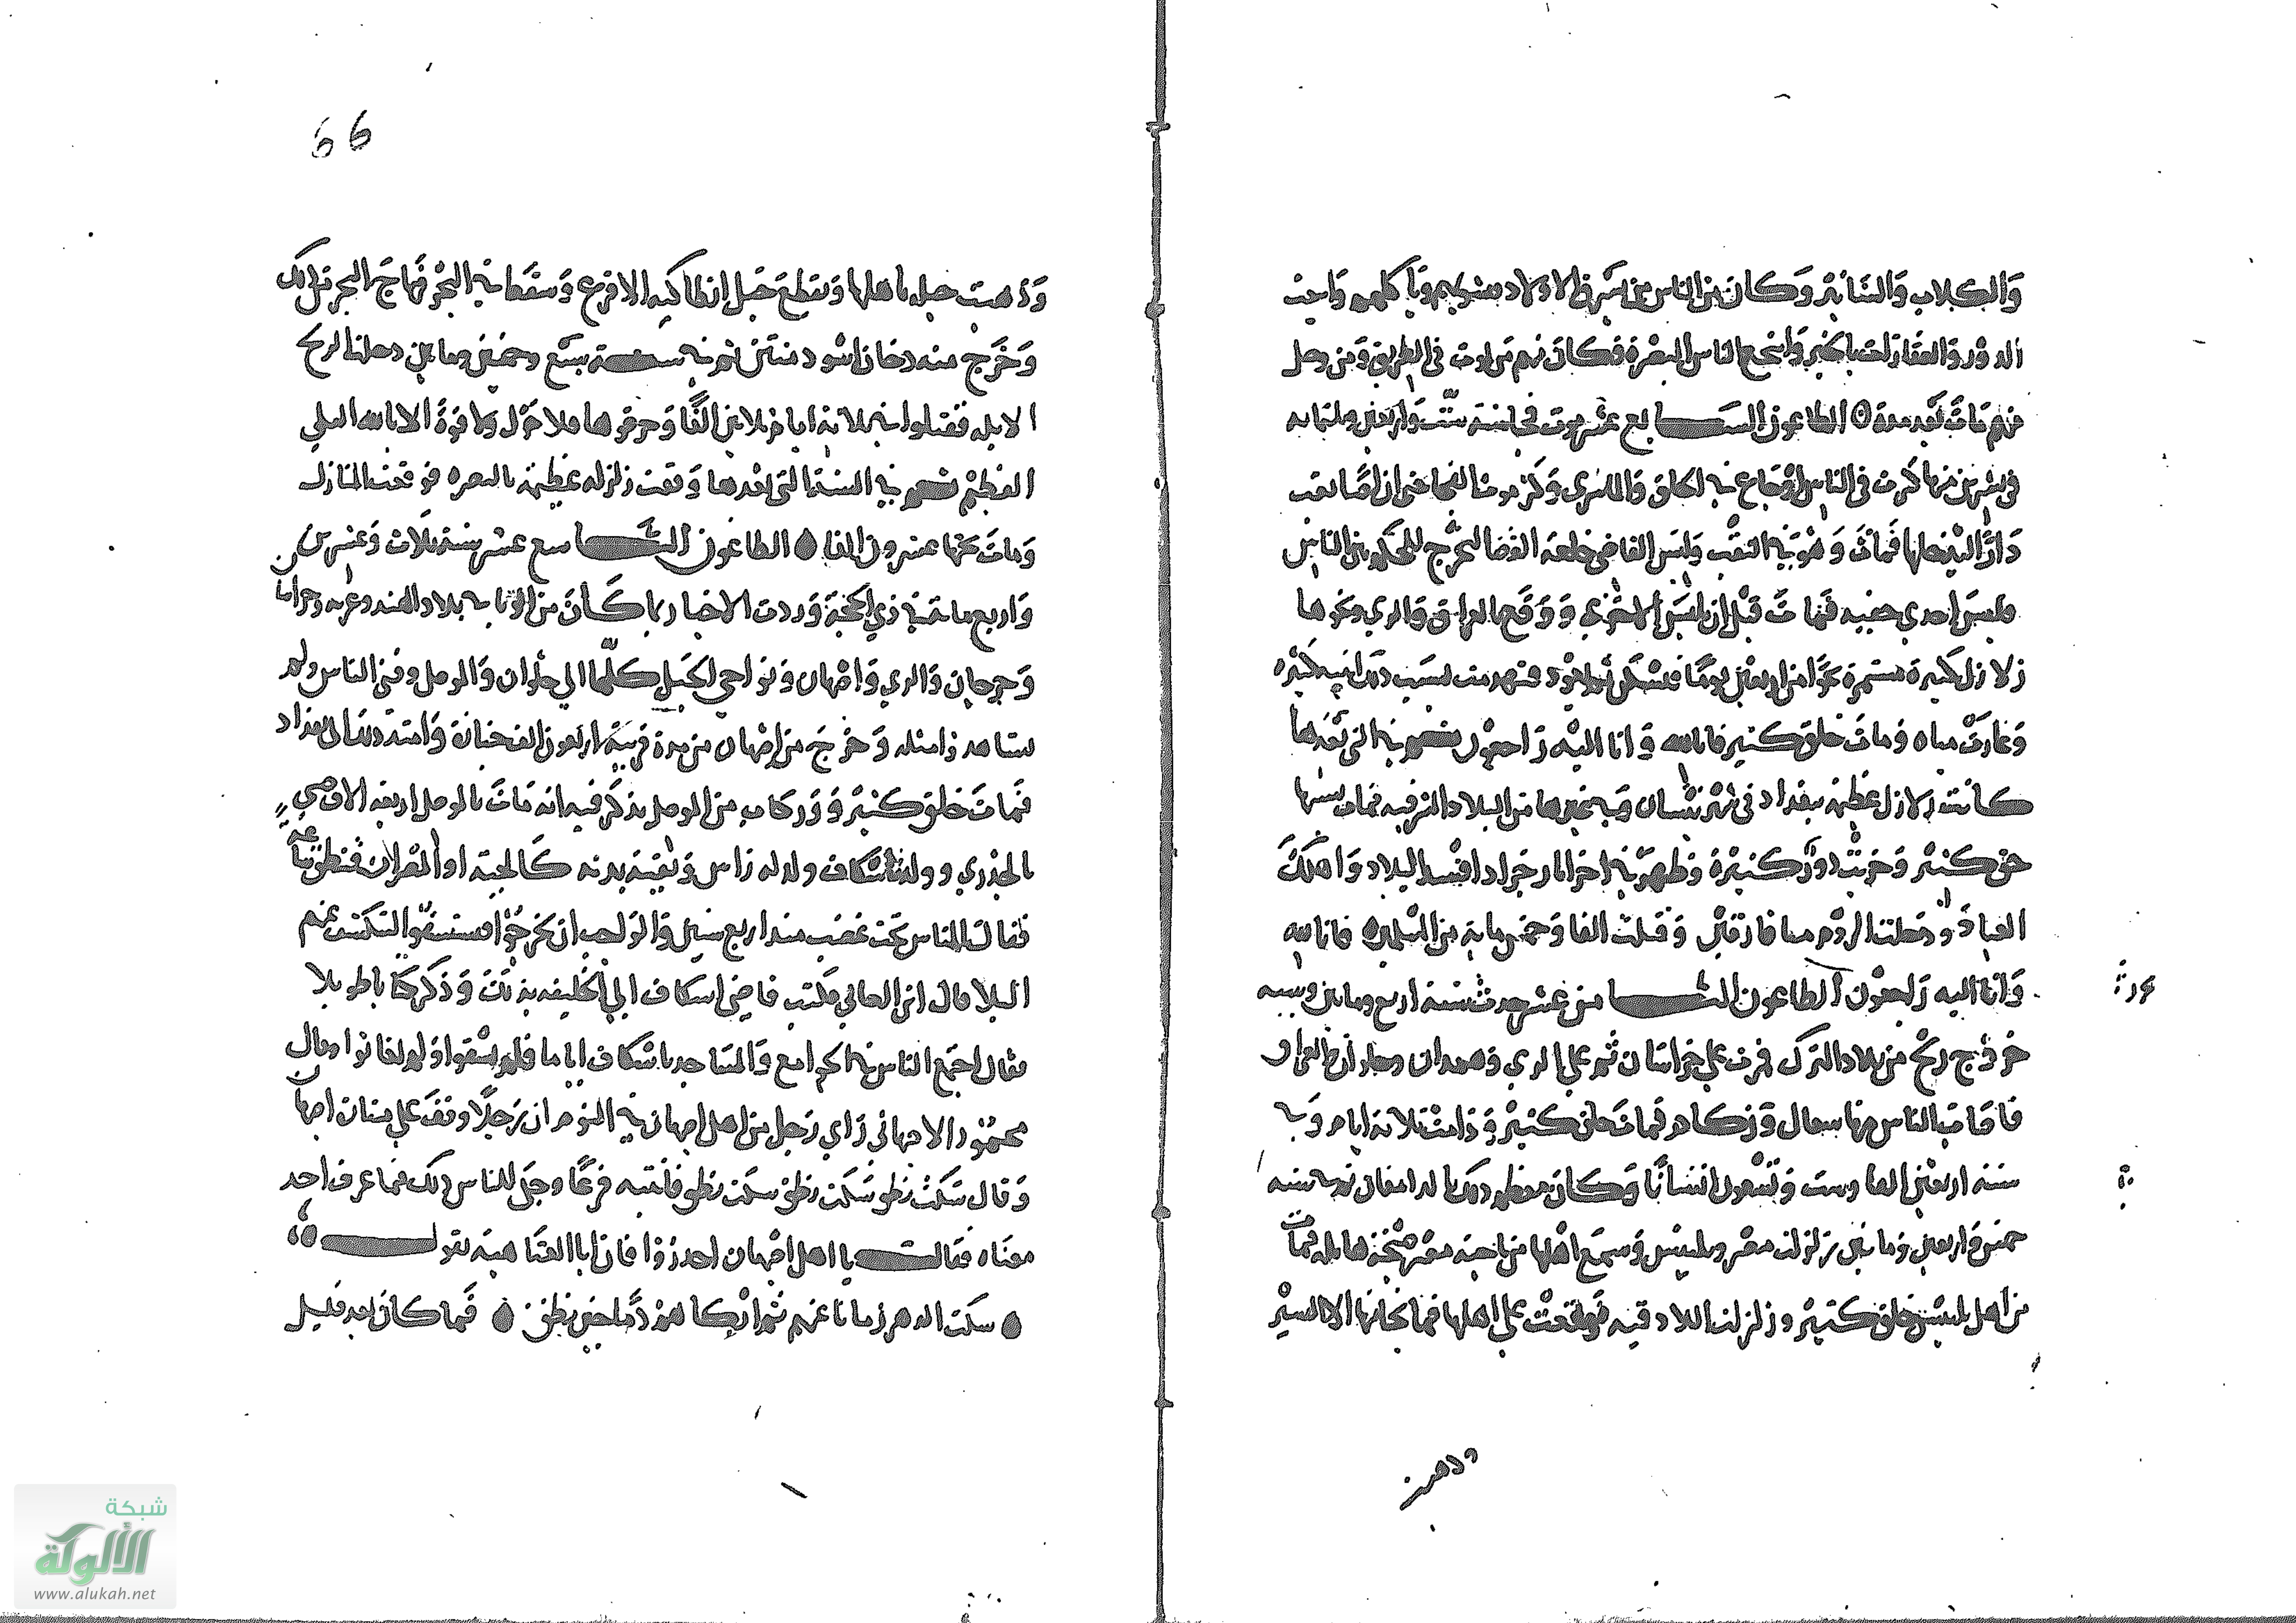 والكلاب والسنانير وكان من الناس من يسرق الاولاد فيشويهم وياكلهم وابيعت
الدور والعقارات بالخبز وانتجع الناس البصرة فكان منهم من يموت في الطريق ومن وصل
منهم مات بعد مدة الطاعون السابع عشر موت فجاة سنة ست واربعين وثلثمايه
في تشرين منها كثرت في الناس اوجاع في الحلق والماشرى وكثر موت الفجاة حتى ان لصا نقب
دارا ليدخلها فمات وهو في النقب ولبس القاضي خلعة القضا ليخرج للحكم بين الناس
فلبس احدي خفيه فمات قبل ان يلبس الاخرى ووقع بالعراق والري ونحوها
زلازل كثيرة مستمرة نحوا من اربعين يوما تسكن ثم تعود فتهدمت بسبب ذلك ابنيه كثيره
وغارت مياه ومات خلق كثير فانا لله وانا اليه راجعون ثم في التي بعدها
كانت زلازل عظيمة ببغداد في شهر نيسان وفي غيرها من البلاد المشرقيه فمات بسببها
خلق كثير وخربت دور كثيرة وظهر في اخر ايار جراد افسد البلاد واهلك
العباد ودخلت الروم ميافارقين وقتلت الفا وخمس ماية من المسلمين فانا لله
وانا اليه راجعون الطاعون الثامن عشر حدث سنة اربع ومايتين وسببه
خروج ريح من بلاد الترك فمرت علي خراسان ثم علي الري وهمدان وحلوان والعراق
فاصاب الناس منها سعال وزكام فمات خلق كثير ودامت ثلاثة ايام وفي
سنة اربعين الفا وست وتسعون انسانا وكان معظم ذلك بالدامغان ثم في سنة
خمس واربعين ومايتين تزلزلت مصر وبلبيس وسمع اهلها من ناحية مصر ضجة هايلة فمات
من اهل بلبيس خلق كثير وزلزلت اللاذقيه فوقعت علي اهلها فما نجا منها الا اليسير
وذهبت
66
وذهبت جبلة باهلها وتقطع جبل انطاكيه الاقرع وسقط في البحر فهاج البحر من ذلك
وخرج منه دخان اسود منتن ثم في سنة تسع وخمسين ومايتين دخلت الريح
الابله فقتلوا في ثلاثة ايام ثلاثين الفا وحرقوها فلا حول ولا قوة الا بالله العلي
العظيم ثم في السنة التي بعدها وقعت زلزله عظيمة بالبصره فوقعت المنازل
ومات تحتها عشرون الفا الطاعون التاسع عشر سنة ثلاث وعشرين
واربع ماية في ذي الحجة وردت الاخبار بما كان من الوبا في بلاد الهند وغزنه وخراسان
وجرجان والري واصبهان ونواحي الجبل كلها الي حلوان والموصل وفني الناس ولم
يشاهد ذا مثله وخرج من اصبهان من مدة قريبة اربعون الف جنازة وامتد ذلك الى بغداد
فمات خلق كثير وورد كتاب من الموصل يذكر فيه انه مات بالموصل اربعة الاف صبي
بالجدري وولد باسكاف ولد له راس وبقية بدنه كالحية او المصران فنطق ساعة
فقال الناس تحت غضب منذ اربع سنين والواجب ان يخرجوا فيستسقوا لتكشف عنهم
البلا قال ابن المعاني فكتب قاضي اسكاف الي الخليفه بذلك وذكر كتابا طويلا
فقال اجتمع الناس في الجوامع والمساجد باسكاف اياما فلم يسقوا ولم يغاثوا وقال
محمود الاصبهاني راي رجل من اهل اصبهان في النوم ان رجلا وقف علي منارة اصبهان
وقال سكت نطق سكت نطق سكت نطق فانتبه فزعا وحكى للناس ذلك فما عرف احد
معناه فقال يا اهل اصبهان احذروا فان ابا العتاهية يقول
سكت الدهر زمانا عنهم ثم ابكاهم دما حين نطق فما كان بعد قليل
شبكة
الألوكة
www.alukah.net